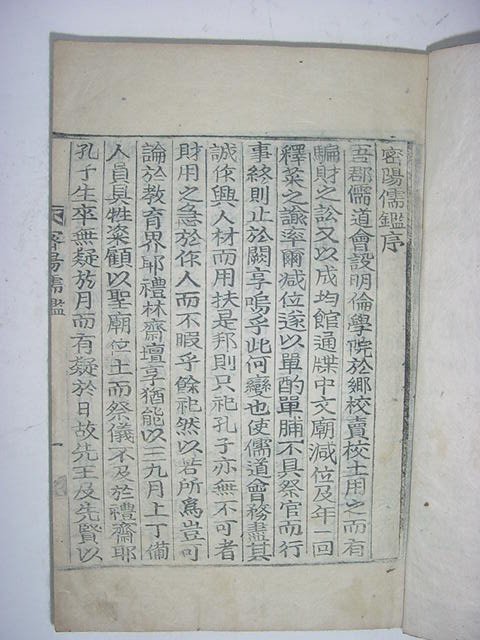 密陽儒鑑序
吾郡儒道會設明倫學院於鄕校賣校土用之而有
騙財之訟又以成均館通牒中文廟減位及年一回
釋菜之議率爾減位遂以單酌單脯不具祭官而行
事終則止於闕享嗚乎此何變也使儒道會務盡其
誠作興人材而用扶是邦則只祀孔子亦無不可者
財用之急於作人而不暇乎餘祀然以若所爲豈可
論於敎育界耶禮林齋壇享猶能以三九月上丁備
人員具牲粢顧以聖廟位土而祭儀不及於禮齋耶
孔子生卒無疑於月而有疑於日故先王及先賢以
密陽儒鑑
一